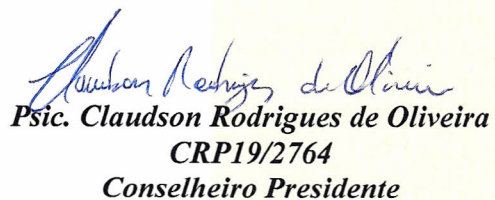 Claudson Rodrigues de Oliveira
Psic. Claudson Rodrigues de Oliveira
CRP19/2764
Conselheiro Presidente